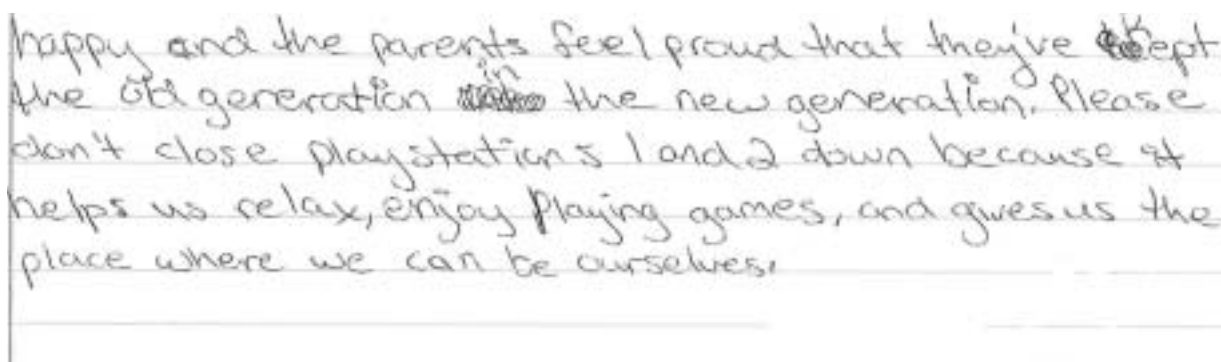 happy and the parents feel proud that they've kept
the old generation in the new generation. Please
don't close playstations 1 and 2 down because it
helps us relax, enjoy Playing games, and gives us the
place where we can be ourselves.